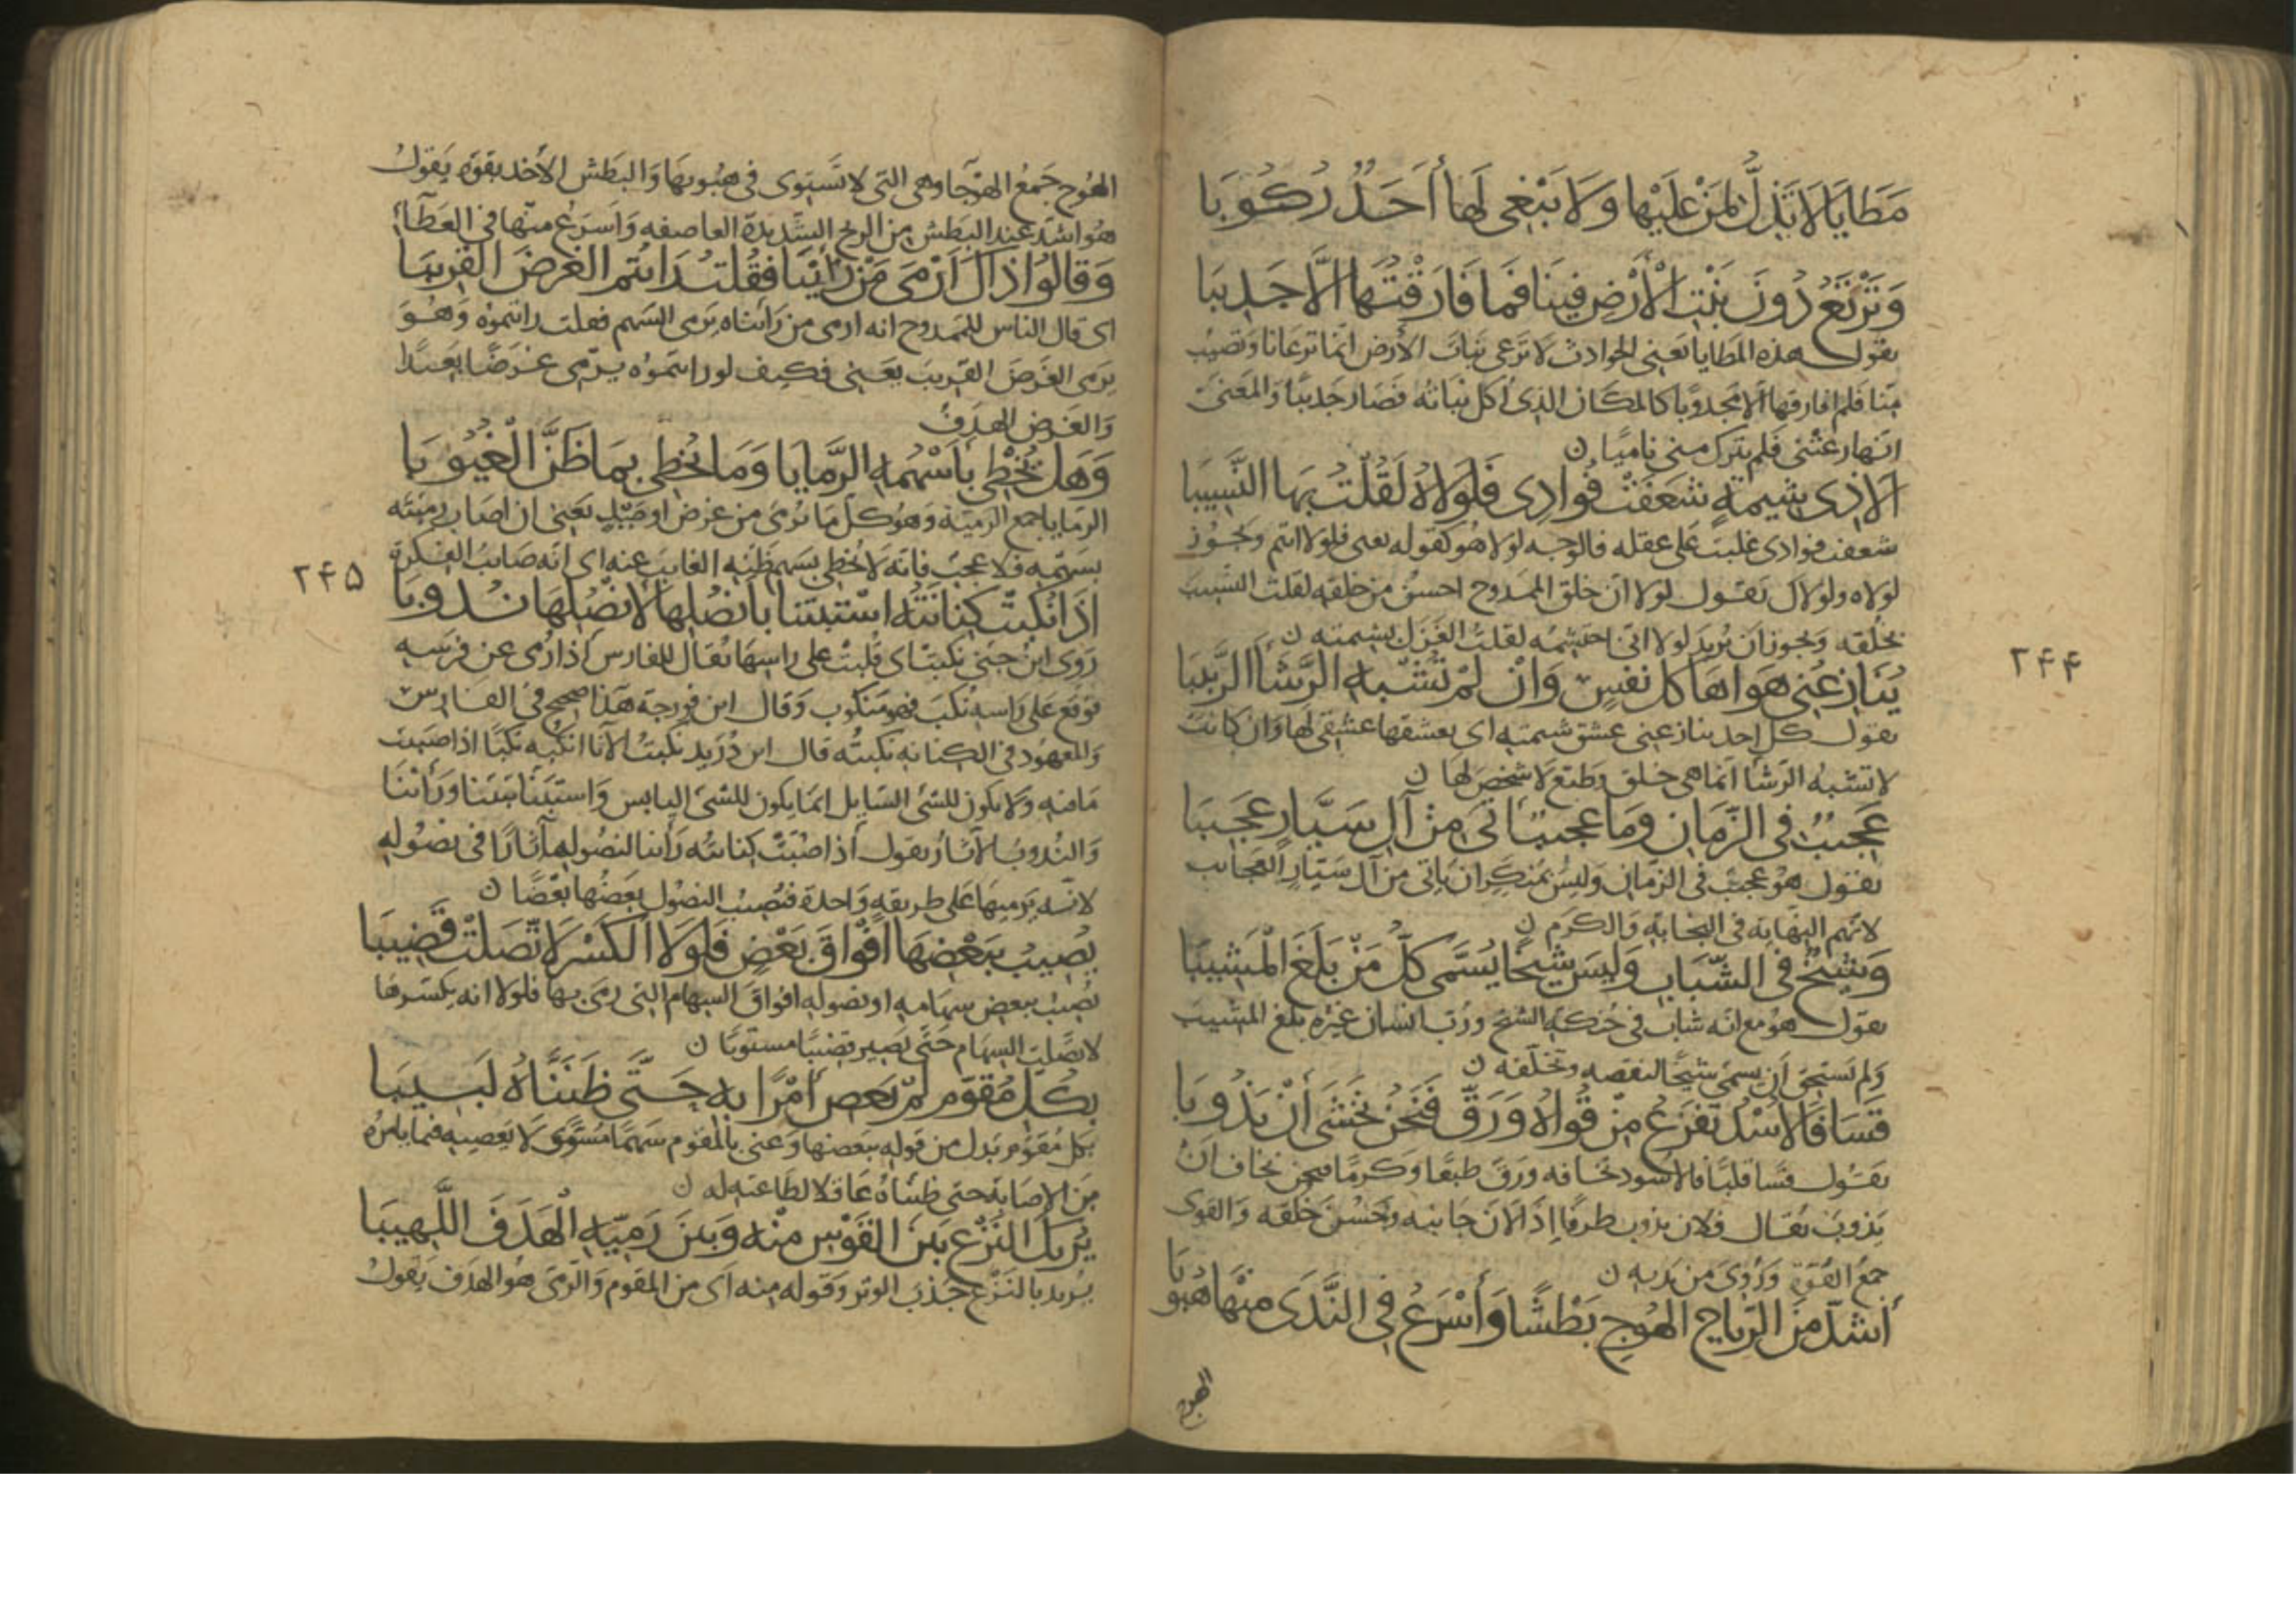 مَطَايَا لَا تَذِلُّ لِمَنْ عَلَيْهَا وَلَا يَبْغِي لَهَا أَحَدٌ رُكُوبَا
وَتَرْتَعُ دُونَ نَبْتِ الْأَرْضِ فِينَا فَمَا فَارَقْتُهَا إِلَّا جَدِيبَا
يقول هذه المطايا يعني الحوادث لا ترعى نبات الأرض انما ترعانا وتصيب
منا فلم افارقها الا مجدوبا كالمكان الذي أكل نباته فصار جديبا والمعنى
انها رعتني فلم تترك مني ناميا ن
الا ذي شِيمَةٍ شَعَفَتْ فُوادِي فَلَوْلَاهُ لَقُلْتُ بِهَا النَّسِيبَا
شعفت فوادى غلبت على عقله فالوجه لولا هو كقوله تعى فلولا انتم ويجوز
لولاه ولولاك يقول لولا ان خلق الممدوح احسن من خلقه لقلت النسيب
بخلقه ويجوز ان يريد لولا انى احتشمه لقلت الغزل بشيمته ن
يُنَازِعُنِي هَوَاهَا كُلُّ نَفْسٍ وَإِنْ لَمْ تُشْبِهِ الرَّشَأَ الرَّبِيبَا
يقول كل احد ينازعني عشق شيمته اي يعشقها عشقي لها وان كانت
لا تشبه الرشأ انما هي خلق وطبع لا شخص لها ن
عَجِيبٌ فِي الزَّمَانِ وَمَا عَجِيبٌ أَتَى مِنْ آلِ سَيَّارٍ عَجِيبَا
يقول هو عجيب في الزمان وليس بمنكر ان ياتي من آل سيار العجائب
لانهم النهاية في النجابة والكرم ن
وَشَيْخٌ فِي الشَّبَابِ وَلَيْسَ شَيْخًا يُسَمَّى كُلُّ مَنْ بَلَغَ الْمَشِيبَا
يقول هو مع انه شاب في حنكة الشيخ ورب انسان غيره بلغ المشيب
ولم يستحق ان يسمى شيخا لنقصه وتخلفه ن
قَسَا فَالْأُسْدُ تَفْزَعُ مِنْ قُوَاهُ وَرَقَّ فَنَحْنُ نَخْشَى أَنْ يَذُوبَا
يقول قسا قلبا فالاسود تخافه ورق طبعا وكرما فنحن نخاف ان
يذوب يقال فلان يذوب ظرفا اذا لان جانبه وحسن خلقه والقوى
جمع القوة وروى من يديه ن
أَشَدُّ مِنَ الرِّيَاحِ الْهُوجِ بَطْشًا وَأَسْرَعُ فِي النَّدَى مِنْهَا هُبُوبَا
الهوج
۲۴۴
الهوج جمع الهوجا وهي التي لا تستوى في هبوبها والبطش الاخذ بقوة يقول
هو اشد عند البطش من الريح الشديدة العاصفه واسرع منها في العطآء
وَقَالُوا ذَاكَ أَرْمَى مَنْ رَأَيْنَا فَقُلْتُ رَأَيْتُمُ الْغَرَضَ الْقَرِيبَا
اى قال الناس للممدوح انه ارمى من رأيناه يرمى السهم فقلت رايتموه وهو
يرمى الغرض القريب يعنى فكيف لو رايتموه يرمى غرضا بعيدا
والغرض الهدف
وَهَلْ يُخْطِي بِأَسْهُمِهِ الرَّمَايَا وَمَا يُخْطِي بِمَا ظَنَّ الْغُيُوبَا
الرمايا جمع الرمية وهو كل ما يرمى من غرض او صيد يعنى ان اصاب رميته
بسهمه فلا عجب فانه لا يخطى بسهم ظنه الغايب عنه اى انه صايب الفكرة
إِذَا نُكِبَتْ كِنَانَتُهُ اسْتَبَنَّا بِأَنْصُلِهَا لِأَنْصُلِهَا نُدُوبَا
روى ابن جنى نكبت اى قلبت على راسها يقال للفارس اذا رمى عن فرسه
فوقع على راسه نكب فهو منكوب وقال ابن فورجة هذا صحيح في الفارس
والمعهود في الكنانه نكبته قال ابن دريد نكبت الانا انكبه نكبا اذا صببت
ما فيه ولا يكون للشئ السايل انما يكون للشئ اليابس واستبنا تبينا وراينا
والندوب الآثار يقول اذا صبت كنانته راينا لنصوله آثارا في نصوله
لانه يرميها على طريقة واحدة فتصيب النصول بعضها بعضا ن
يُصِيبُ بِبَعْضِهَا أَفْوَاقَ بَعْضٍ فَلَوْلَا الْكَسْرُ لَاتَّصَلَتْ قَضِيبَا
يصيب ببعض سهامه او نصوله افواق السهام التى رمى بها فلولا انه يكسرها
لاتصلت السهام حتى يصير قضيبا مستويا ن
بِكُلِّ مُقَوَّمٍ لَمْ يَعْصِ أَمْرًا بِهِ حَتَّى ظَنَنَّاهُ لَبِيبَا
بكل مقوم بدل من قوله ببعضها وعنى بالمقوم سهما مستوى لا يعصيه فيما يامره
من الاصابة حتى ظنناه عاقلا لطاعته له ن
يُرِيكَ النَّزْعُ بَيْنَ الْقَوْسِ مِنْهُ وَبَيْنَ رَمِيِّهِ الْهَدَفَ اللَّهِيبَا
يريد بالنزع جذب الوتر وقوله منه اى من المقوم والرمى هو الهدف يقول
۲۴۵